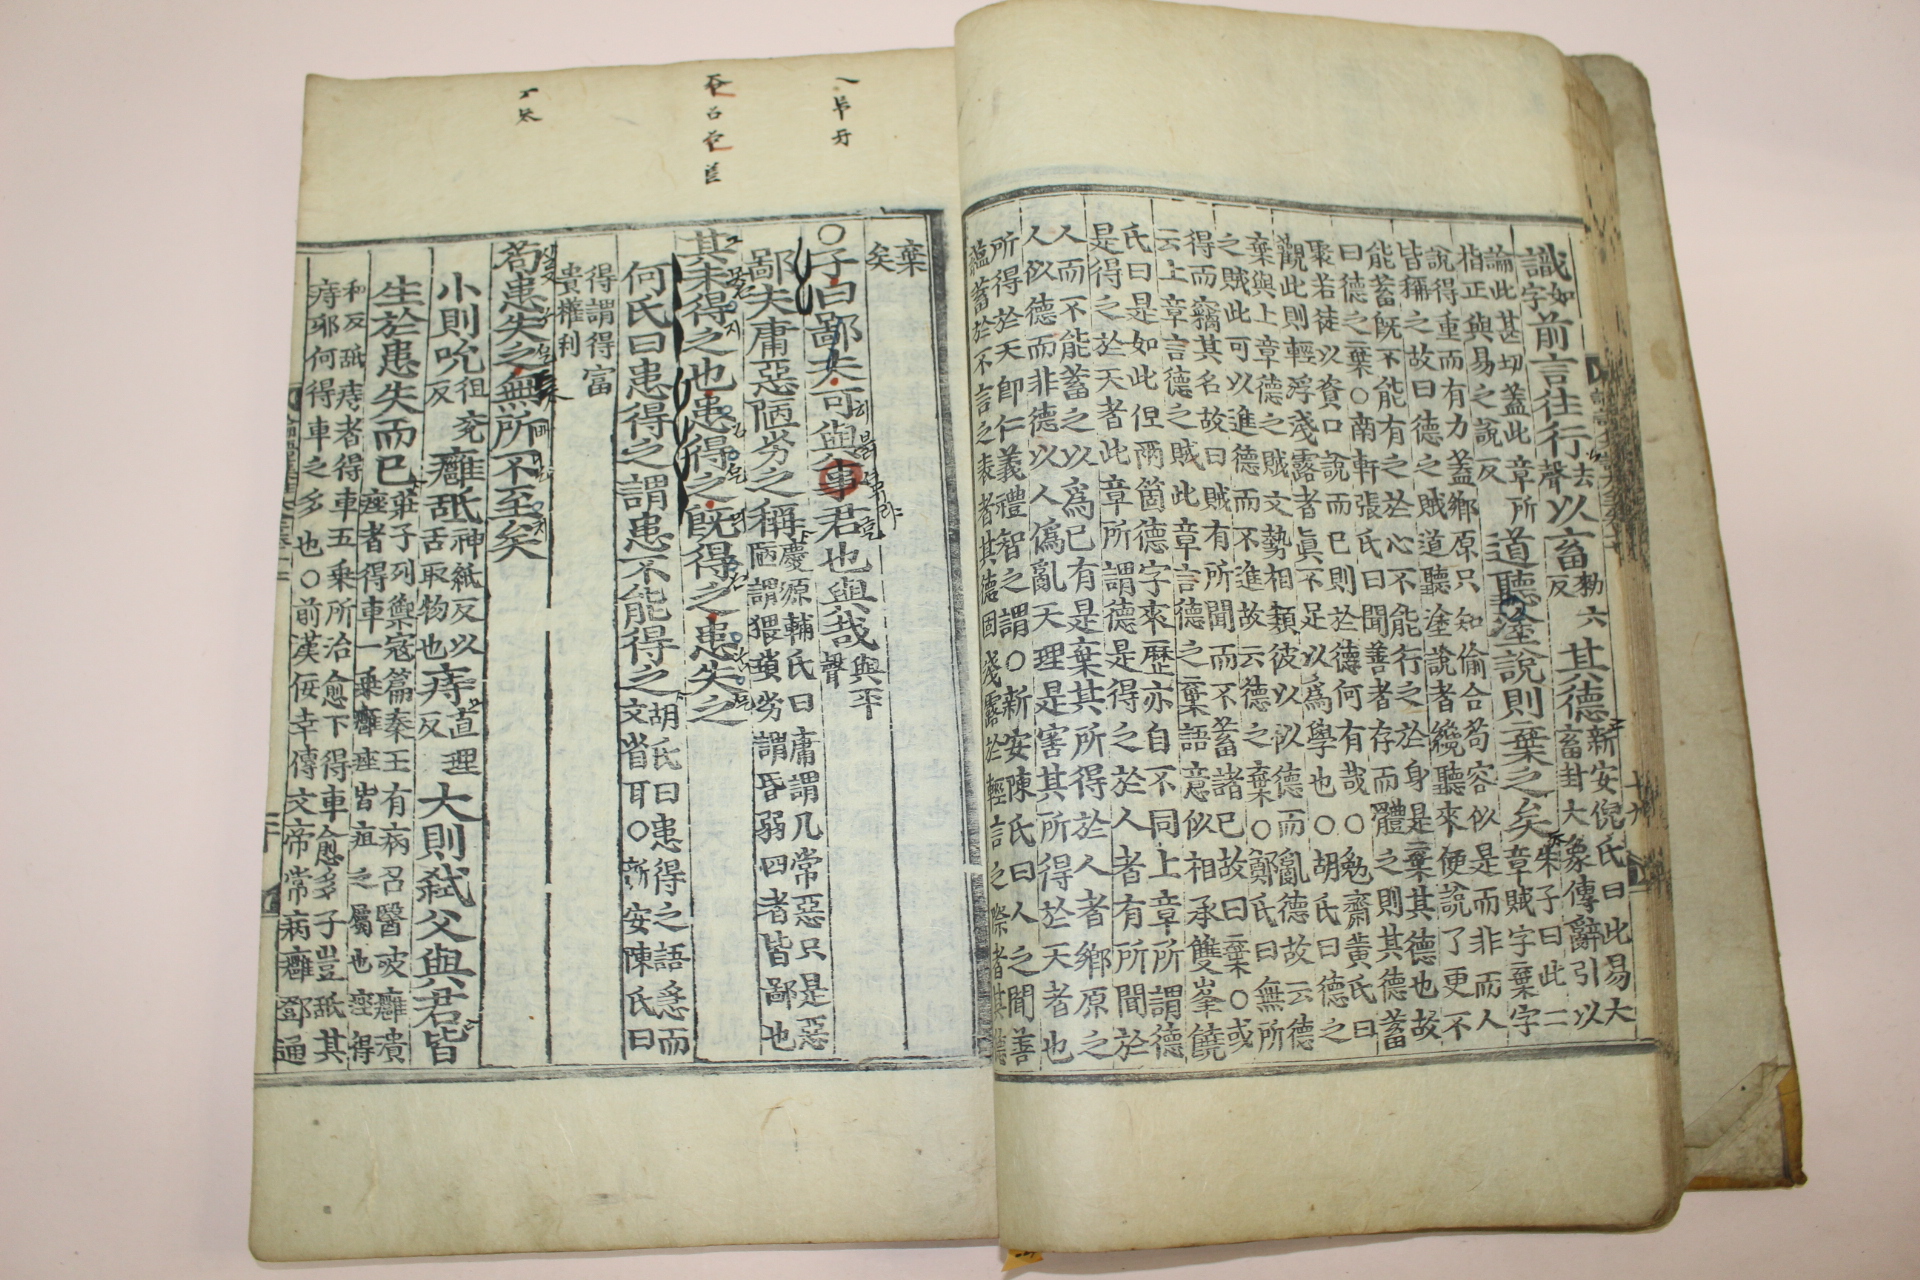 識如字前言往行去聲以畜勑六反其德新安倪氏曰此易大畜封大象傳辭引以
論此甚切蓋此章所指正與易之說反道聽塗說則棄之矣朱子曰此二章賊字棄字
說得重而有力蓋鄉原只知偷合苟容似是而非而人
皆稱之故曰德之賊道聽塗說者纔聽來便說了更不
能蓄旣不能有之於心不能行之於身是棄其德也故
曰德之棄○南軒張氏曰聞善者存而體之則其德蓄
聚若徒以資口說而已則於德何有哉○勉齋黃氏曰
觀此則輕浮淺露者眞不足以爲學也○胡氏曰德之
棄與上章德之賊文勢相類彼以似德而亂德故云德
之賊此可以進德而不進故云德之棄○鄭氏曰無所
得而竊其名故曰賊有所聞而不蓄諸已故曰棄○或
云上章言德之賊此章言德之棄語意似相承雙峯饒
氏曰是如此但兩箇德字來歷亦自不同上章所謂德
是得之於天者此章所謂德是得之於人者有所聞於
人而不能蓄之以爲已有是棄其所得於人者鄉原之
人似德而非德以人僞亂天理是害其所得於天者也
所得於天卽仁義禮智之謂○新安陳氏曰人之聞善
蘊蓄於不言之表者其德固淺露於輕言之際者其德
棄矣
○子曰鄙夫可與事君也與哉與平聲
鄙夫庸惡陋劣之稱慶源輔氏曰庸謂凡常惡只是惡陋謂猥瑣劣謂昏弱四者皆鄙也
其未得之也患得之旣得之患失之
何氏曰患得之謂患不能得之胡氏曰患得之語急而文省耳○新安陳氏曰
得謂得富貴權利
苟患失之無所不至矣
小則吮徂兗反癰舐神紙反以舌取物也痔直理反大則弑父與君皆
生於患失而已莊子列禦寇篇秦王有病召醫破癰潰痤者得車一乘癰痤皆疽之屬也痤得
和反舐痔者得車五乘所治愈下得車愈多子豈舐其
痔耶何得車之多也○前漢佞幸傳文帝常病癰鄧通